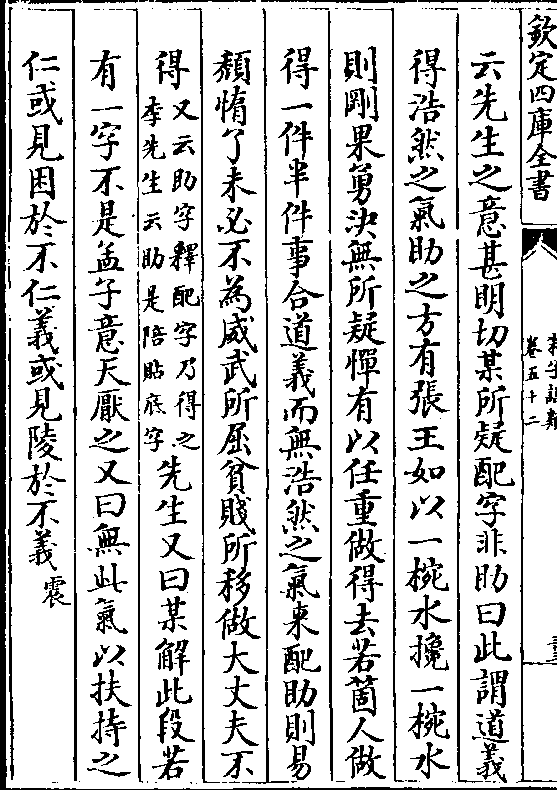 欽定四庫全書
卷五十二
云先生之意甚明切某所疑配字非助曰此謂道義
得浩然之氣助之方有張王如以一椀水攙一椀水
則剛果勇決無所疑憚有以任重做得去若箇人做
得一件半件事合道義而無浩然之氣來配助則易
頽惰了未必不為威武所屈貧賤所移做大丈夫不
得又云助字釋配字乃得之
李先生云助是陪貼底字
先生又曰某解此段若
有一字不是孟子意天厭之又曰無此氣以扶持之
仁或見困於不仁義或見陵於不義震